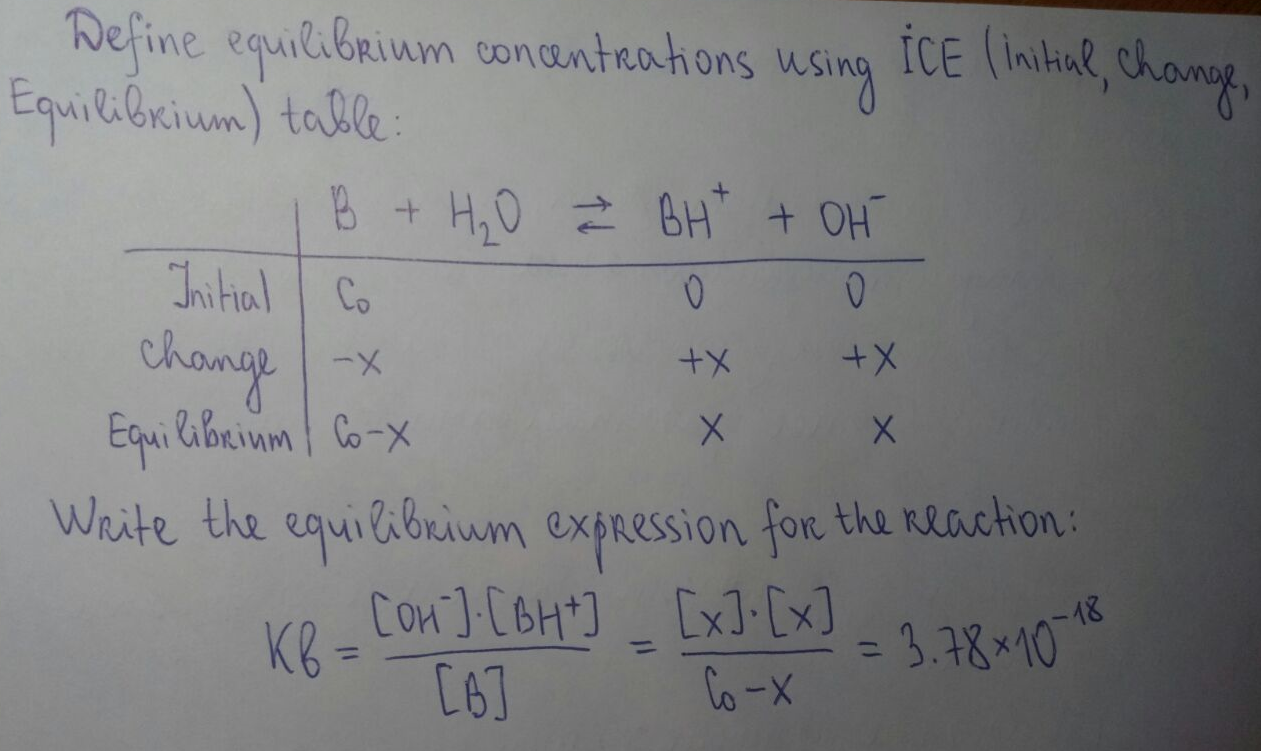 Define equilibrium concentrations using ICE (initial, change,
Equilibrium) table:
B + H₂O ⇄ BH⁺ + OH⁻
Initial C₀ 0 0
change -x +x +x
Equilibrium C₀-x x x
Write the equilibrium expression for the reaction:
Kb = [OH⁻]·[BH⁺] / [B] = [x]·[x] / C₀-x = 3.78×10⁻¹⁸